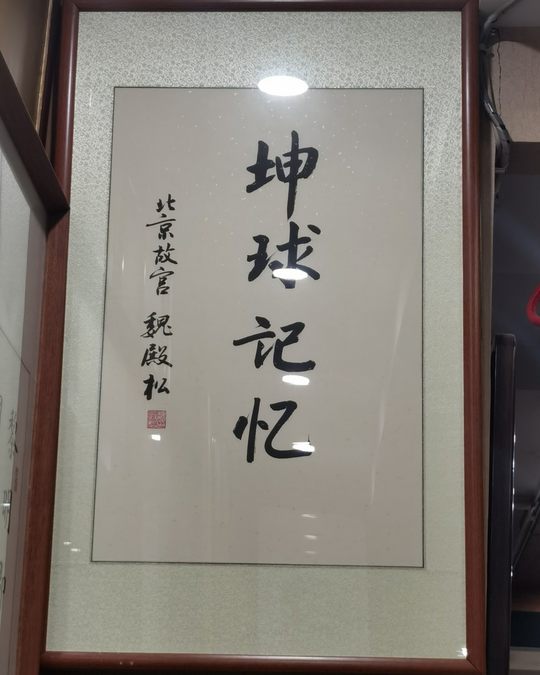 坤球记忆
北京故宫 魏殿松